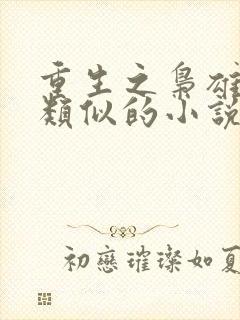 重生之梟雄
類似的小說
初戀璀璨如夏